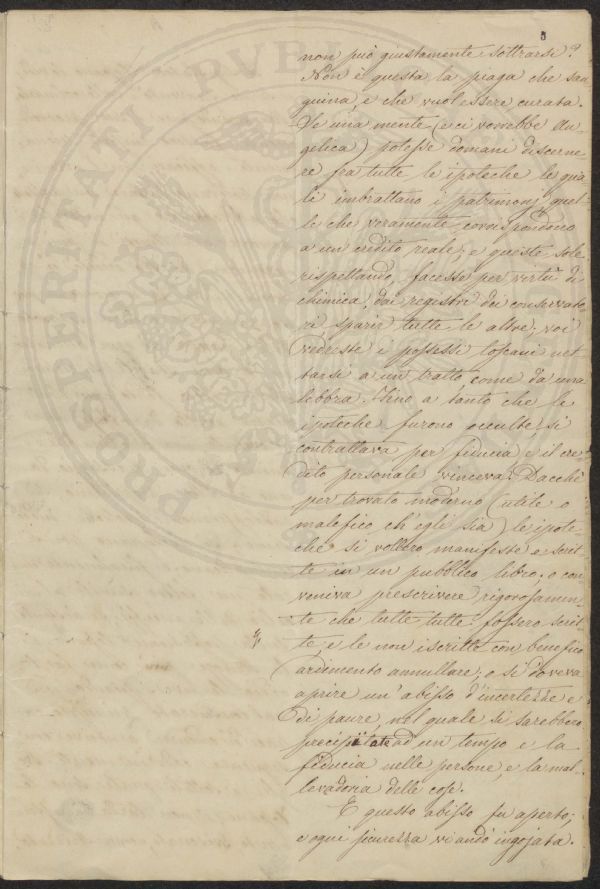 3
non può giustamente sottrarsi?
Non è questa la piaga che san
guina, e che vuol essere curata.
Se una mente (e ci vorrebbe An-
gelica) potesse domani discerne-
re fra tutte le ipoteche le qua-
li imbrattano i patrimonj quel-
le che veramente corrispondono
a un credito reale, e queste sole
rispettando, facesse per virtù di
chimica, dai registri dei conservato-
ri, sparir tutte le altre, voi
vedreste i possessi toscani net
tarsi a un tratto come da una
lebbra. Fino a tanto che le
ipoteche furono occulte, si
contrattava per fiducia e il cre-
dito personale vinceva. Dacchè
per trovato moderno (utile o
malefico ch'egli sia) le ipote-
che si vollero manifeste e scrit-
te in un pubblico libro; o con
veniva prescrivere rigorosamen-
te che tutte tutte fossero scrit-
te, e le non iscritte con benefico
ardimento annullare, o si doveva
aprire un'abisso d'incertezze e
di paure, nel quale si sarebbero
precipitate ad un tempo e la
fiducia nelle persone, e la mal-
levadoria delle cose.
E questo abisso fu aperto;
e ogni sicurezza vi andò ingojata.
PROSPERITATI PVB